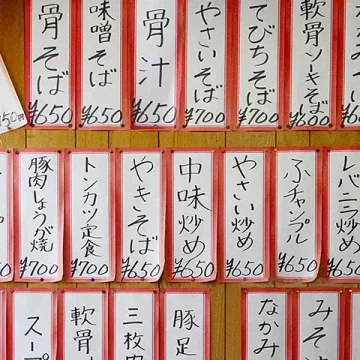 骨そば ¥650
味噌そば ¥650
骨汁 ¥650
やさいそば ¥700
てびちそば ¥700
軟骨ソーキそば ¥600
¥700
50円
豚肉しょうが焼 ¥700
トンカツ定食 ¥700
やきそば ¥650
中味炒め ¥650
やさい炒め ¥650
ふチャンプル ¥650
レバニラ炒め ¥650
スープ
軟骨
三枚肉
豚足
なかみ
みそ